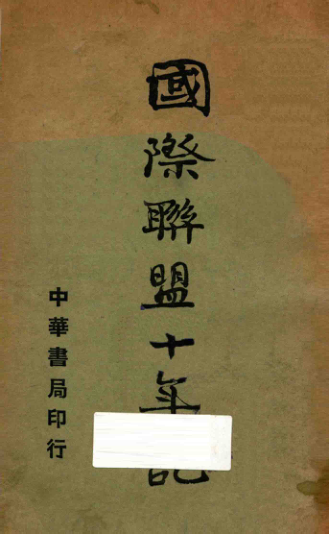 國際聯盟十年記
中華書局印行